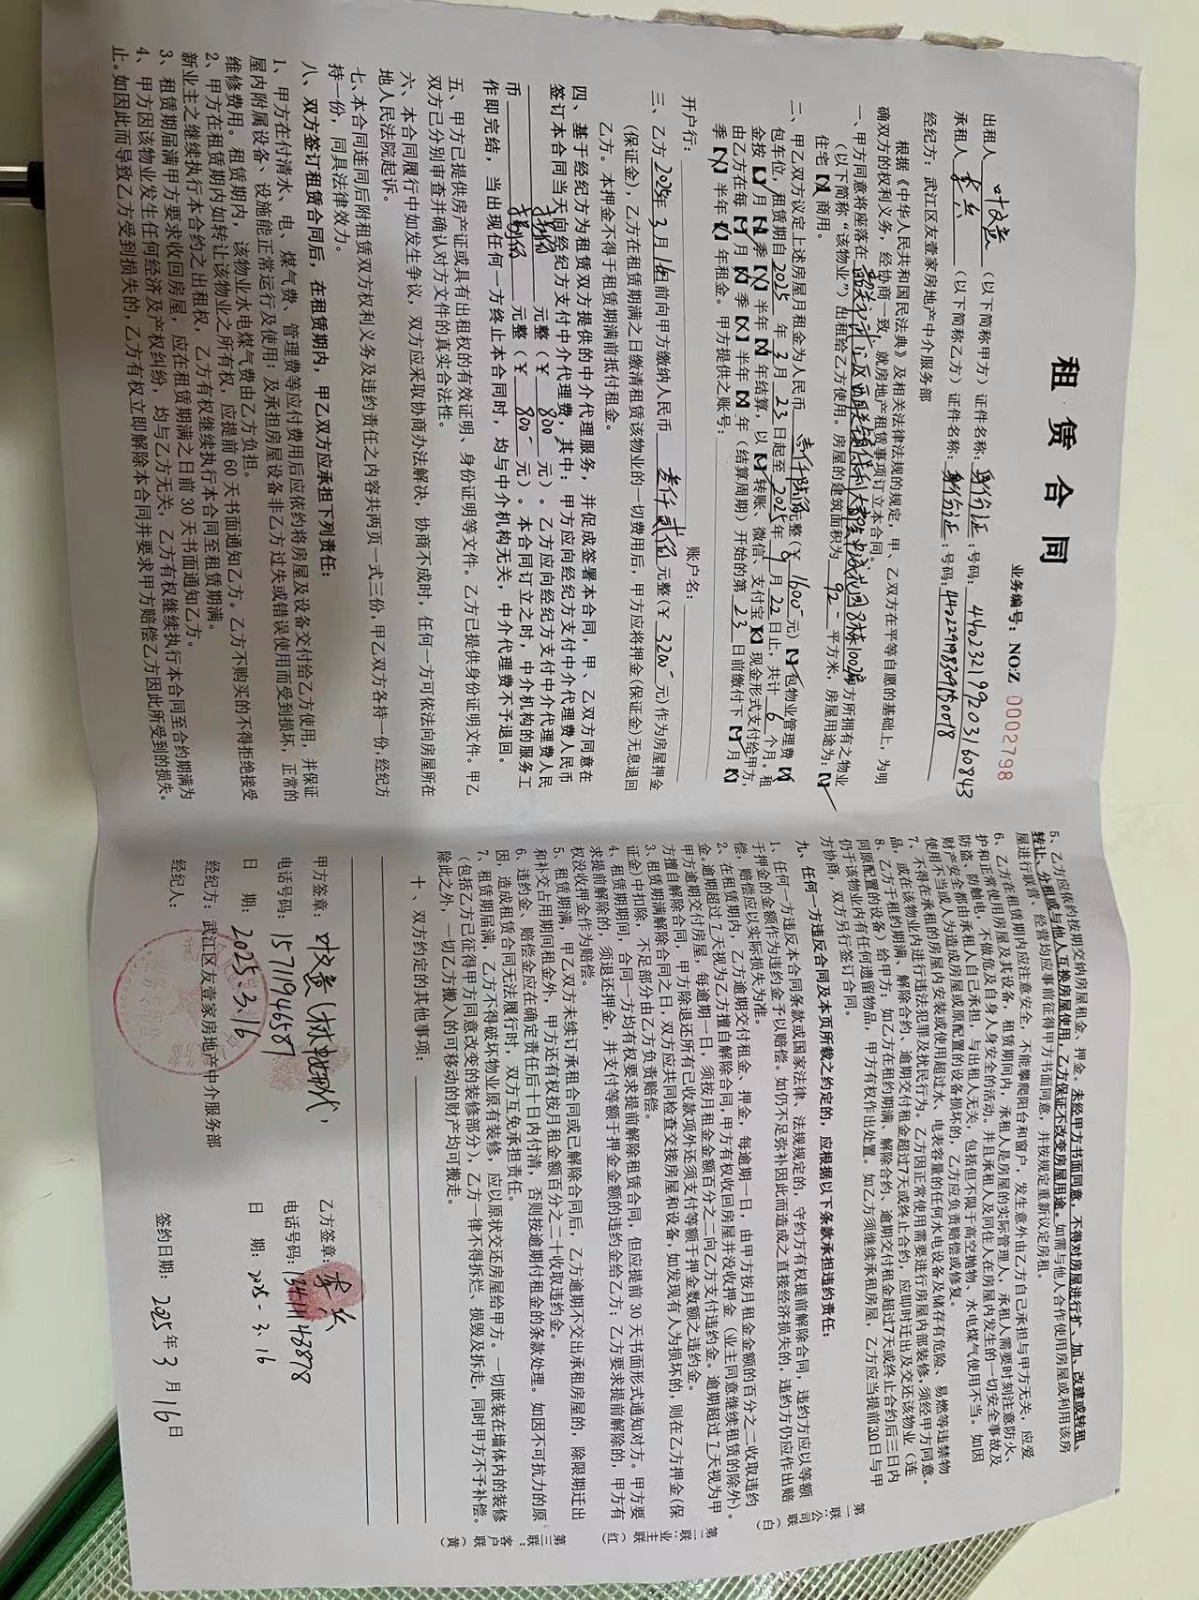 租 赁 合 同
业务编号：NO:Z 0002798
出租人 （以下简称甲方）证件名称：身份证；号码：440232199203160843
承租人 李兰 （以下简称乙方）证件名称：身份证；号码：
经纪方：武江区友壹家房地产中介服务部
根据《中华人民共和国民法典》及相关法律法规的规定，甲、乙双方在平等自愿的基础上，为明
确双方的权利义务，经协商一致，就房地产租赁事项订立本合同。
一、甲方同意将座落在 方所拥有之物业
（以下简称“该物业”）出租给乙方使用。房屋的建筑面积为 92 平方米，房屋用途为：
住宅 商用。
二、甲乙双方议定上述房屋月租金为人民币 壹仟陆佰 元整（￥ 1600 元） 包物业管理费
包车位，租赁期自 2025 年 3 月 23 日起至 2025 年 9 月 22 日止，共计 6 个月。租
金按 月 季 半年 年结算，以 转账、微信、支付宝 现金形式支付给甲方，
由乙方在每 月 季 半年 年（结算周期）开始的第 23 日前缴付下 月
季 半年 年租金。甲方提供之账号：
开户行： 账户名：
三、乙方 2025年 3 月 16日前向甲方缴纳人民币 叁仟贰佰 元整（￥ 3200 元）作为房屋押金
（保证金），乙方在租赁期满之日缴清租赁该物业的一切费用后，甲方应将押金（保证金）无息退回
乙方。本押金不得于租赁期满前抵付租金。
四、基于经纪方为租赁双方提供的中介代理服务，并促成签署本合同，甲、乙双方同意在
签订本合同当天向经纪方支付中介代理费，其中：甲方应向经纪方支付中介代理费人民币
捌佰 元整（￥ 800 元）。乙方应向经纪方支付中介代理费人民
币 捌佰 元整（￥ 800 元）。本合同订立之时，中介机构的服务工
作即完结，当出现任何一方终止本合同时，均与中介机构无关，中介代理费不予退回。
五、甲方已提供房产证或具有出租权的有效证明、身份证明等文件。乙方已提供身份证明文件。甲乙
双方已分别审查并确认对方文件的真实合法性。
六、本合同履行中如发生争议，双方应采取协商办法解决，协商不成时，任何一方可依法向房屋所在
地人民法院起诉。
七、本合同连同后附租赁双方权利义务及违约责任之内容共两页一式三份，甲乙双方各持一份，经纪方
持一份，同具法律效力。
八、双方签订租赁合同后，在租赁期内，甲乙双方应承担下列责任：
1、甲方在付清水、电、煤气费、管理费等应付费用后应依约将房屋及设备交付给乙方使用，并保证
屋内附属设备、设施能正常运行及使用；及承担房屋设备非乙方过失或错误使用而受到损坏，正常的
维修费用。租赁期内，该物业水电煤气费由乙方负担。
2、甲方在租赁期内如转让该物业之所有权，应提前 60 天书面通知乙方。乙方不购买的不得拒绝接受
新业主之继续执行本合约之出租权，乙方有权继续执行本合同至租赁期满。
3、租赁期届满甲方要求收回房屋，应在租赁期满之日前 30 天书面通知乙方。
4、甲方因该物业发生任何经济及产权纠纷，均与乙方无关，乙方有权继续执行本合同至合约期满为
止。如因此而导致乙方受到损失的，乙方有权立即解除本合同并要求甲方赔偿乙方因此所受到的损失。
5、乙方应依约按期交纳房屋租金、押金。未经甲方书面同意，不得对房屋进行扩、加、改建或转租、
转让、分租或与他人互换房屋使用，乙方保证不改变房屋用途。如需与他人合作使用房屋或利用该房
屋进行联营、经营均应事前征得甲方书面同意，并按规定重新议定房租。
6、乙方在租赁期内应注意安全，不能攀爬阳台和窗户，发生意外由乙方自己承担与甲方无关，应爱
护和正常使用房屋及其设备，租赁期间内，承租人是房屋的实际管理人，承租人需要时刻注意防火、
防盗、防触电，不做危及自身人身安全的活动。并且承租人及同住人在房屋内发生的一切安全事故及
财产安全都由承租人自己承担，与出租人无关，包括但不限于高空抛物、水电煤气使用不当。如因
使用不当或人为造成房屋或原配置的设备损坏的，乙方应负责赔偿或修复。
7、不得在承租的房屋内安装或使用超过水、电表容量的任何水电设备及储存有危险、易燃等违禁物
品，或在该物业内进行违法犯罪及扰民行为。乙方因正常使用需要进行房屋内部装修，须经甲方同意。
8、乙方于租约期满、解除合约、逾期交付租金超过7天或终止合约后三日内
同原配置的设备）给甲方；如乙方在租约期满、解除合约、逾期交付租金超过7天或终止合约，应即时迁出及交还该物业（连
仍于该物业内有任何遗留物品，甲方有权作出处置。如乙方须继续承租房屋，乙方应当提前30日与甲
方协商，双方另行签订合同。
九、任何一方违反合同及本页所载之约定的，应根据以下条款承担违约责任：
1、任何一方违反本合同条款或国家法律、法规规定的，守约方有权提前解除合同，违约方应以等额
于押金的金额作为违约金予以赔偿。如仍不足弥补因此而造成之直接经济损失的，违约方仍应作出赔
偿，赔偿应以实际损失为准。
2、在租赁期内，乙方逾期交付租金、押金，每逾期一日，由甲方按月租金金额的百分之二收取违约
金。逾期超过 7 天视为乙方擅自解除合同，甲方有权收回房屋并没收押金（业主同意继续租赁的除外）。
甲方逾期交付房屋，每逾期一日，须按月租金金额百分之二向乙方支付违约金。逾期超过 7 天视为甲
方擅自解除合同，甲方除退还所有已收款项外还须支付等额于押金数额之违约金。
3、租赁期满解除合同之日，双方应共同检查交接房屋和设备，如发现有人为损坏的，则在乙方押金（保
证金）中扣除，不足部分由乙方负责赔偿。
4、租赁期期间，合同一方均有权要求提前解除租赁合同，但应提前 30 天书面形式通知对方。甲方要
求提前解除的，须退还押金，并支付等额于押金金额的违约金给乙方；乙方要求提前解除的，甲方有
权没收押金作为赔偿。
5、租赁期满，甲乙双方未续订承租合同或已解除合同后，乙方逾期不交出承租房屋的，除限期迁出
和补交占用期间租金外，甲方还有权按月租金额百分之二十收取违约金。
6、违约金、赔偿金应在确定责任后十日内付清，否则按逾期付租金的条款处理。如因不可抗力的原
因，造成租赁合同无法履行时，双方互免承担责任。
7、租赁期届满，乙方不得破坏物业原有装修，应以原状交还房屋给甲方。一切嵌装在墙体内的装修
（包括乙方已征得甲方同意改变的装修部分），乙方一律不得拆烂、损毁及拆走，同时甲方不予补偿。
除此之外，一切乙方搬入的可移动的财产均可搬走。
十、双方约定的其他事项：
甲方签章：
电话号码：15711946587
日 期：2025.3.16
经纪方：武江区友壹家房地产中介服务部
经纪人：
乙方签章：李兰
电话号码：13411148878
日 期：2025-3.16
签约日期：2025 年 3 月 16 日
第一联：公司联（白）
第二联：业主联（红）
第三联：客户联（黄）